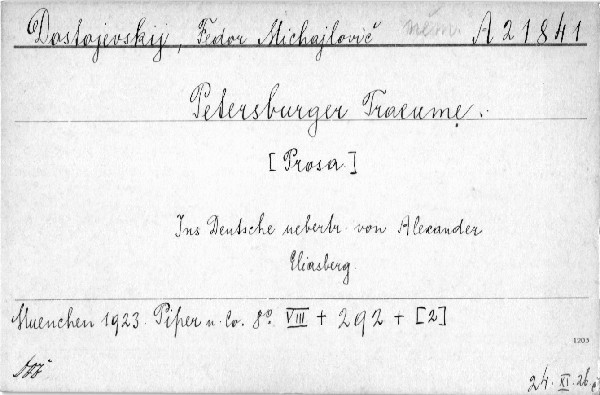 Dostojevskij, Fedor Michajlovič něm. A 21841
Petersburger Traeume.
[Prosa.]
Ins Deutsche uebertr. von Alexander
Eliasberg.
Muenchen 1923. Piper u. Co. 8º VIII + 292 + [2]
1205
24. XI. 26